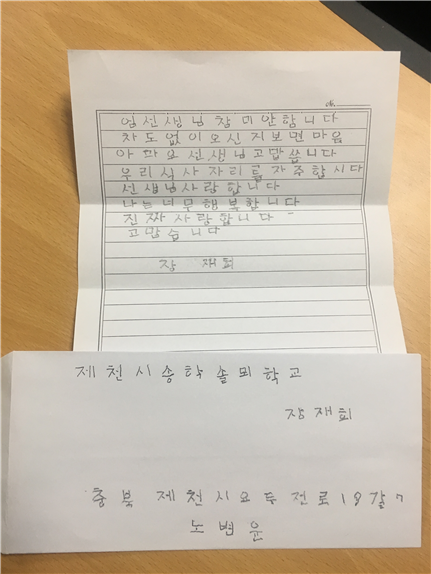 임선생님 참 미안합니다
차도 없이 오신 지 보면 마음
아파요 선생님 고맙씁니다
우리 식사 자리를 자주 합시다
선생님 사랑합니다
나는 너무 행복합니다
진짜 사랑합니다
고맙습니다
장 재희
제천시송학솔뫼학교
장재희
충북 제천시 의두전로19길7
노병윤